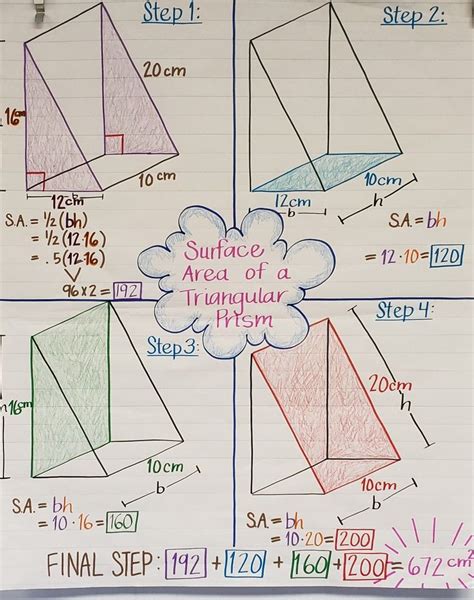 Step 1:
16cm
20cm
12cm
b
10cm
S.A. = 1/2 (bh)
= 1/2 (12·16)
= .5(12·16)
96x2 = 192
Step 2:
12cm
b
10cm
h
S.A. = bh
= 12·10= 120
Surface
Area of a
Triangular
Prism
Step3:
16cm
10cm
b
S.A. = bh
= 10·16= 160
Step 4:
20cm
h
10cm
b
S.A. = bh
= 10·20= 200
FINAL STEP: 192 + 120 + 160 + 200 = 672 cm²